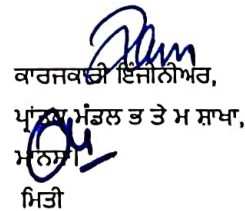 ਕਾਰਜਕਾਰੀ ਇੰਜੀਨੀਅਰ,
ਪ੍ਰਾਂਤਕ ਮੰਡਲ ਭ ਤੇ ਮ ਸ਼ਾਖਾ,
ਮਾਨਸਾ
ਮਿਤੀ